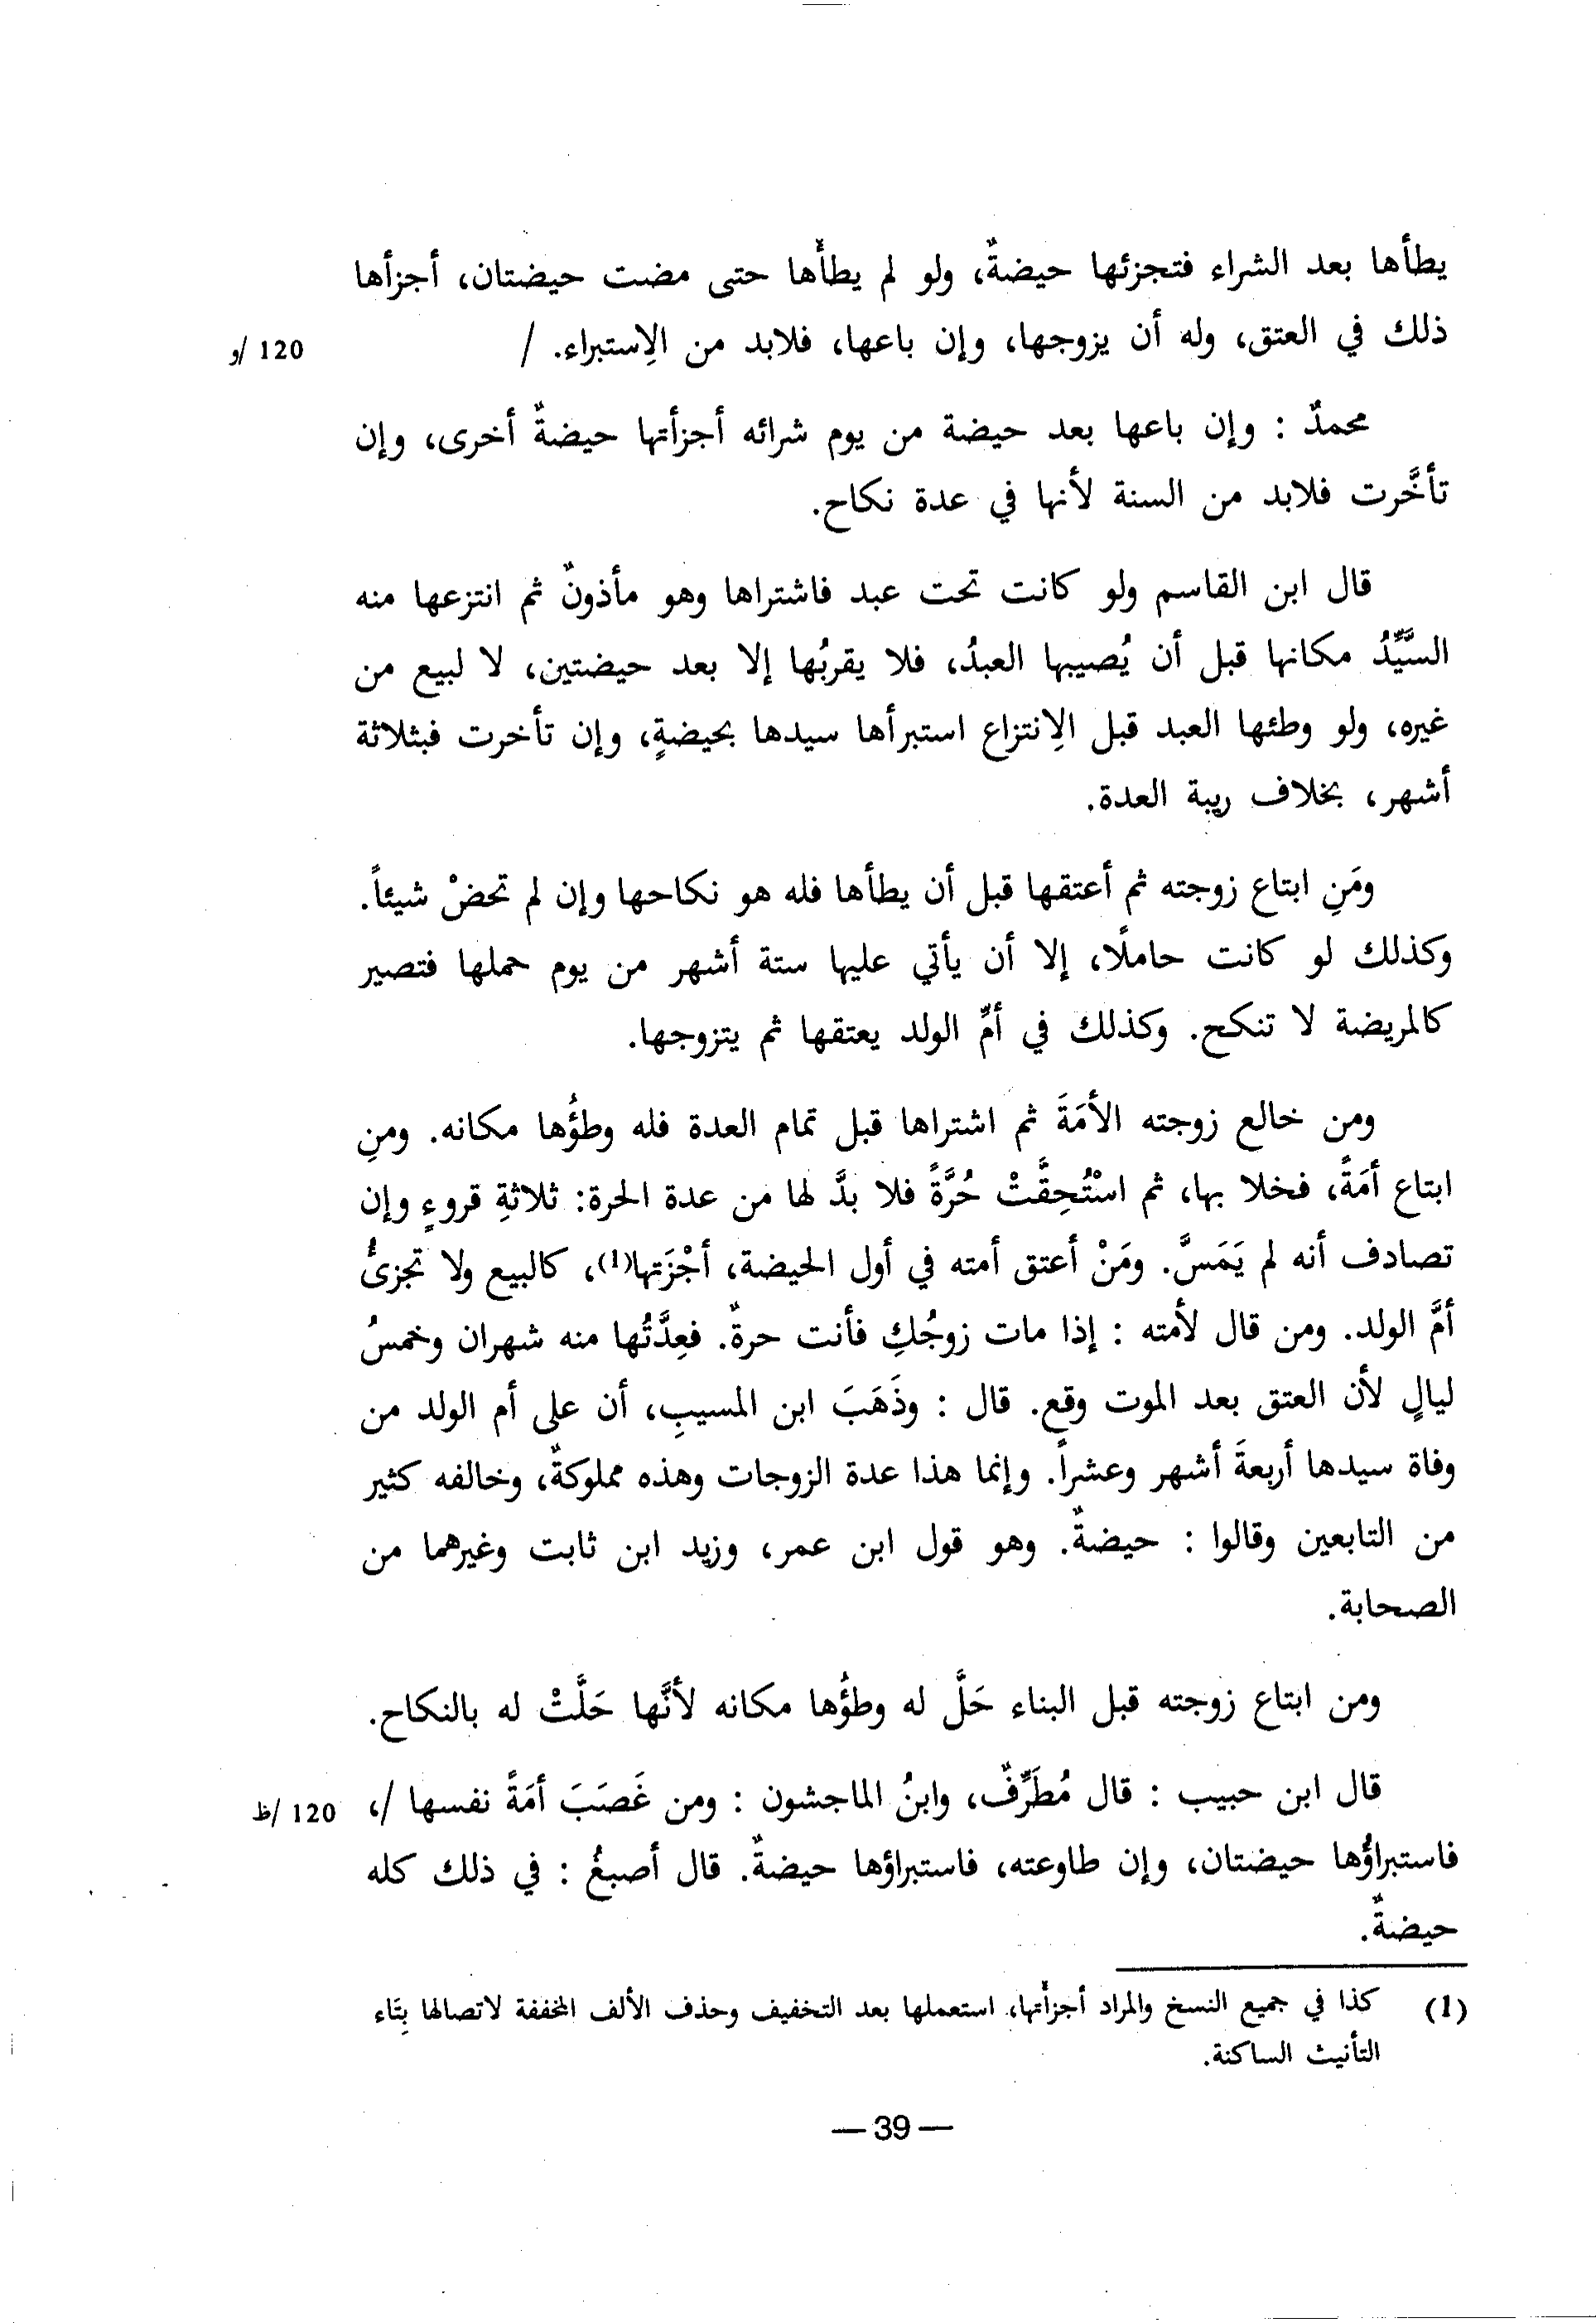 يطأها بعد الشراء فتجزئها حيضةٌ، ولو لم يطأْها حتى مضت حيضتان، أجزأها
ذلك في العتق، وله أن يزوجها، وإن باعها، فلابد من الاِستبراء. / 120 /و
محمدٌ : وإن باعها بعد حيضة من يوم شرائه أجزأتها حيضةٌ أخرى، وإن
تأخَّرت فلابد من السنة لأنها في عدة نكاح.
قال ابن القاسم ولو كانت تحت عبد فاشتراها وهو مأذونٌ ثم انتزعها منه
السَّيِّدُ مكانها قبل أن يُصيبها العبدُ، فلا يقربُها إلا بعد حيضتين، لا لبيع من
غيره، ولو وطئها العبد قبل الاِنتزاع استبرأها سيدها بحيضةٍ، وإن تأخرت فبثلاثة
أشهر، بخلاف ريبة العدة.
ومَنِ ابتاع زوجته ثم أعتقها قبل أن يطأها فله هو نكاحها وإن لم تحضْ شيئاً.
وكذلك لو كانت حاملًا، إلا أن يأتي عليها ستة أشهر من يوم حملها فتصير
كالمريضة لا تنكح. وكذلك في أمِّ الولد يعتقها ثم يتزوجها.
ومن خالع زوجته الأمَةَ ثم اشتراها قبل تمام العدة فله وطؤُها مكانه. ومنِ
ابتاع أمَةً، فخلا بها، ثم اسْتُحِقَّتْ حُرَّةً فلا بدَّ لها من عدة الحرة: ثلاثةِ قروءٍ وإن
تصادف أنه لم يَمَسَّ. ومَنْ أعتق أمته في أول الحيضة، أجْزَتها(1)، كالبيع ولا تجزئُ
أمَّ الولد. ومن قال لأمته : إذا مات زوجُكِ فأنت حرةٌ. فعِدَّتُها منه شهران وخمسُ
ليالٍ لأن العتق بعد الموت وقع. قال : وذَهَبَ ابن المسيبِ، أن على أم الولد من
وفاة سيدها أربعةَ أشهر وعشراً. وإنما هذا عدة الزوجات وهذه مملوكةٌ، وخالفه كثير
من التابعين وقالوا : حيضةٌ. وهو قول ابن عمر، وزيد ابن ثابت وغيرهما من
الصحابة.
ومن ابتاع زوجته قبل البناء حَلَّ له وطؤُها مكانه لأنَّها حَلَّتْ له بالنكاح.
قال ابن حبيب : قال مُطَرِّفٌ، وابنُ الماجشون : ومن غَصَبَ أمَةً نفسها /، 120 /ظ
فاستبراؤُها حيضتان، وإن طاوعته، فاستبراؤها حيضةٌ. قال أصبغُ : في ذلك كله
حيضةٌ.
(1) كذا في جميع النسخ والمراد أجزأتها، استعملها بعد التخفيف وحذف الألف المخففة لاتصالها بِتَاء
التأنيث الساكنة.
— 39 —